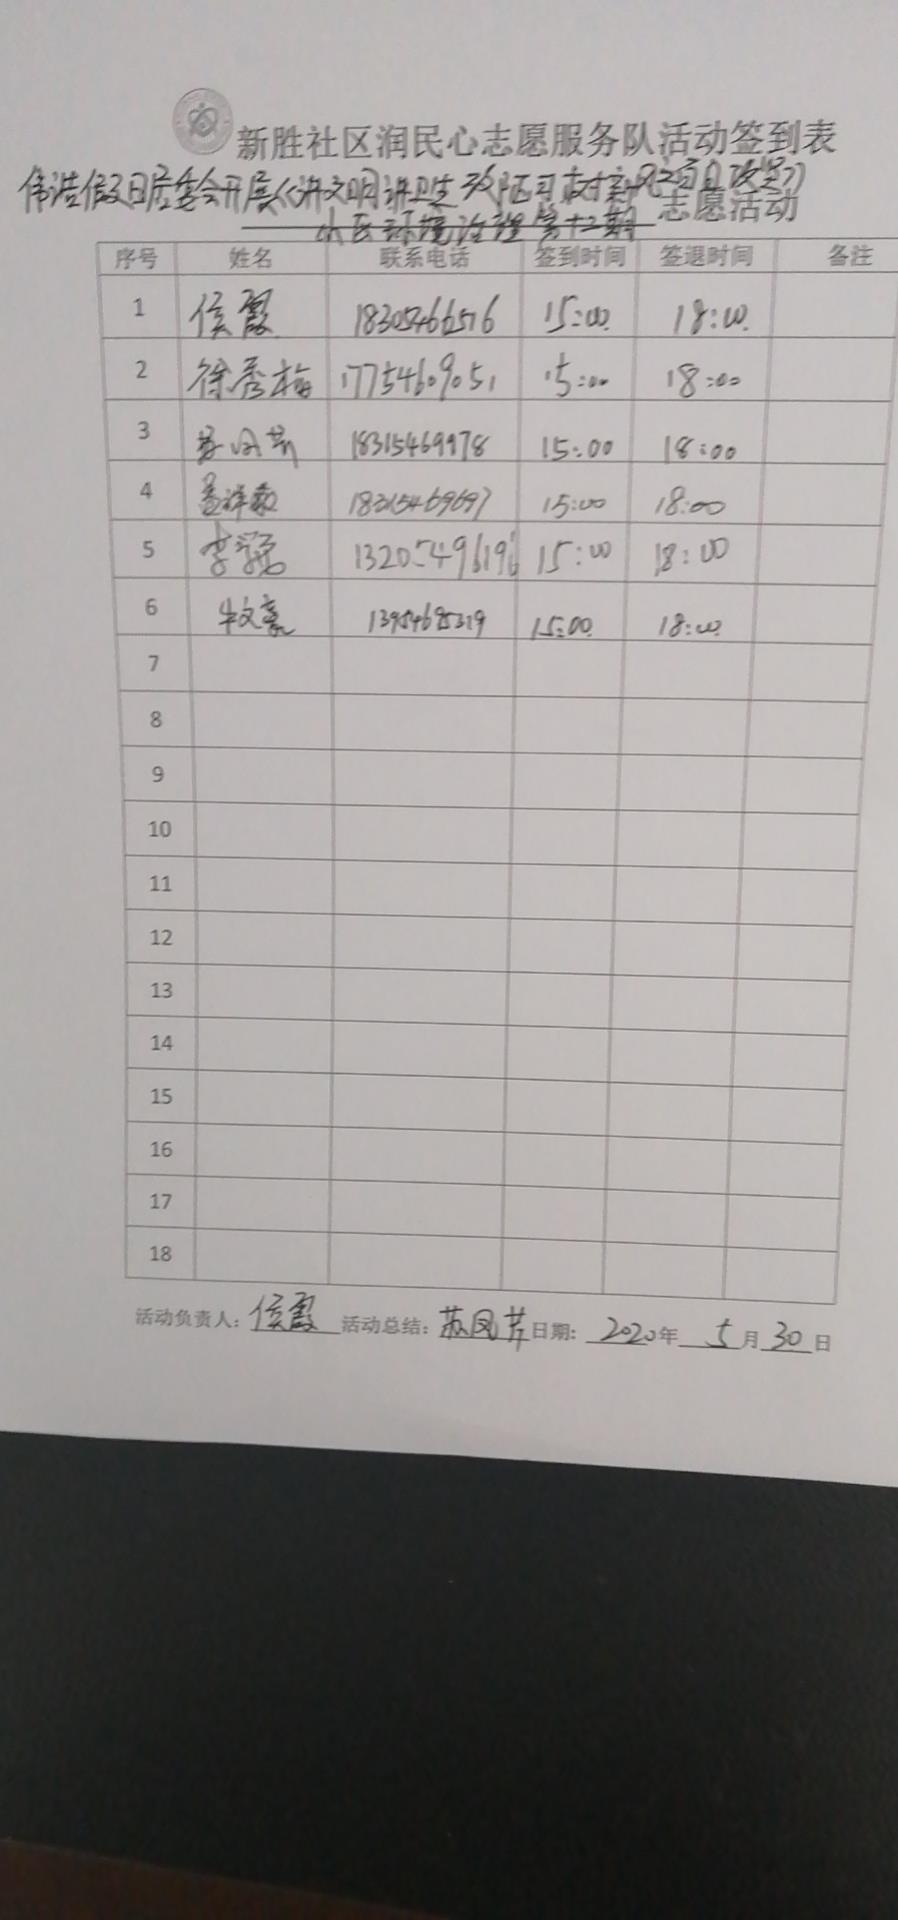 新胜社区润民心志愿服务队活动签到表
伟浩假日居委会开展《讲文明讲卫生 改陋习树新风之项目攻坚》
小区环境治理第十二期 志愿活动
序号 姓名 联系电话 签到时间 签退时间 备注
1 侯霞 18305466516 15:00 18:00
2 徐秀梅 17754609051 15:00 18:00
3 18315469978 15:00 18:00
4 18315469697 15:00 18:00
5 15:00 18:00
6 牛文豪 15:00 18:00
7
8
9
10
11
12
13
14
15
16
17
18
活动负责人: 侯霞 活动总结: 苏凤芹 日期: 2020年 5月30日